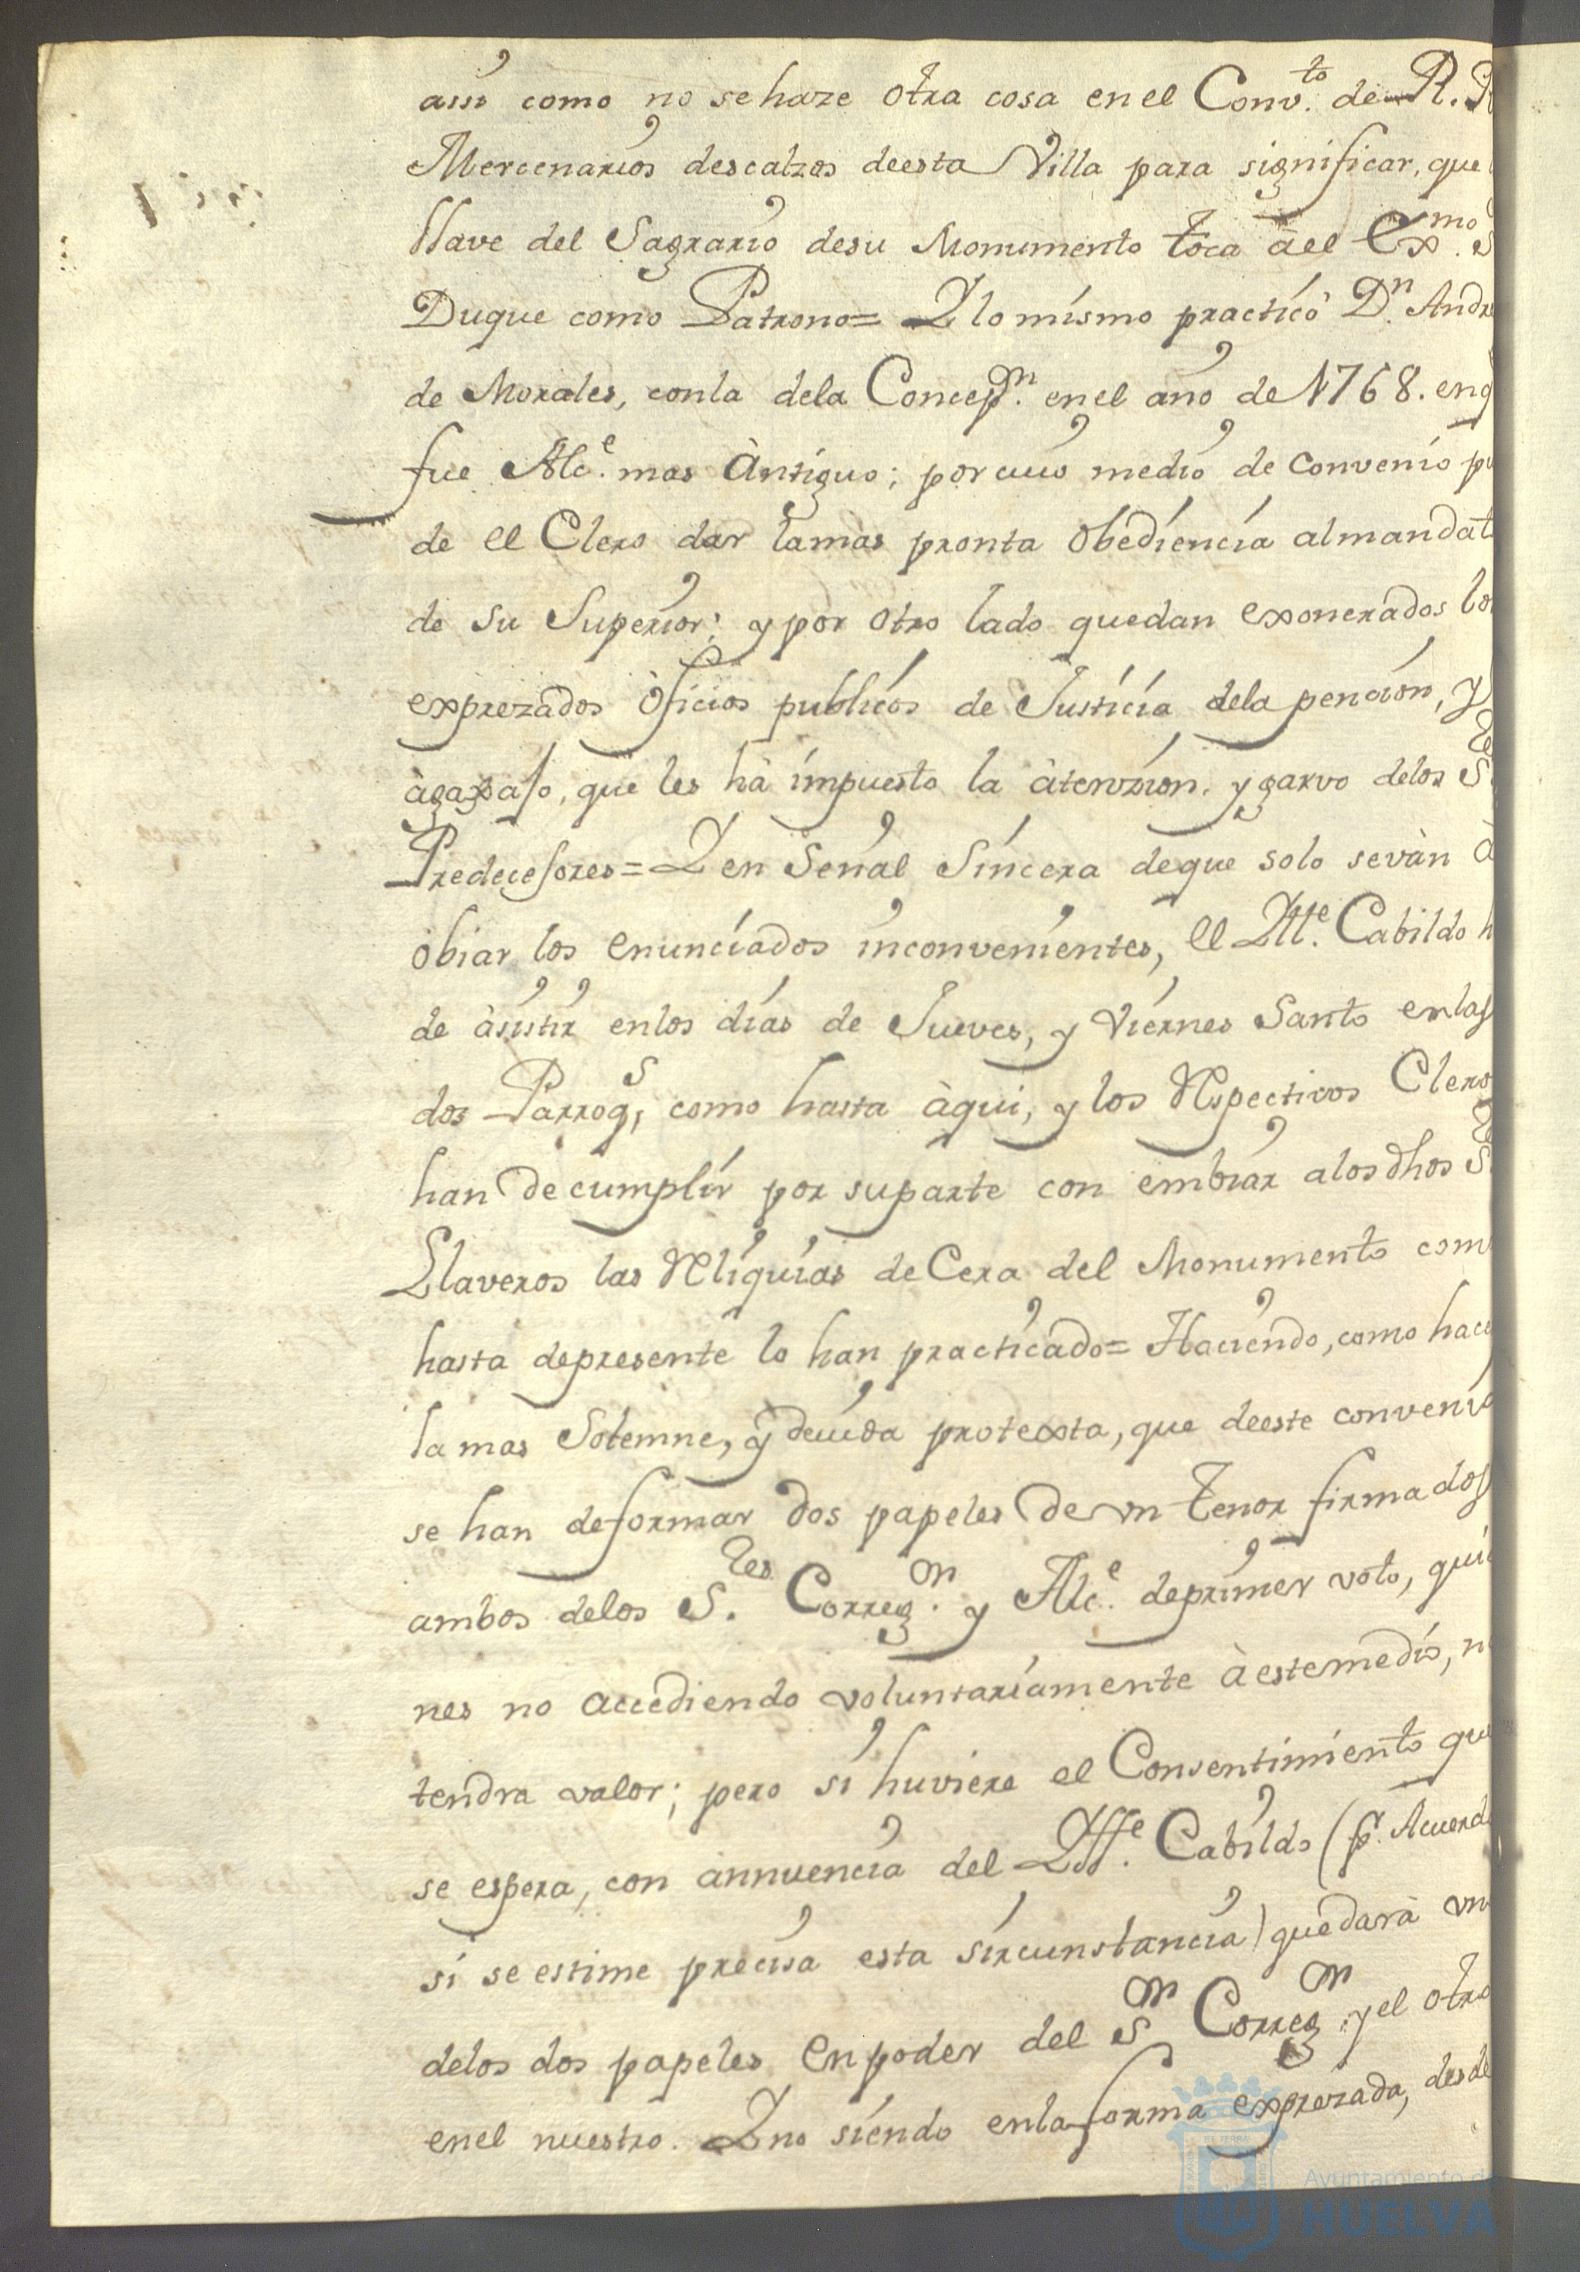 assi como no se haze otra cosa en el Conv.to de R. R
Mercenarios descalzos deesta Villa para significar, que
llave del Sagrario desu Monumento toca àel Ex.mo S
Duque como Patrono= Y lo mismo practicò D.n Andr
de Morales, conla dela Concep.n en el año de 1768. enq
fue Alc.e mas Àntiguo; por cuio medio de convenio pu
de el Clero dar lamas pronta obediencia almandat
de su Superior; y por otro lado quedan exonerados lo
exprezados òficios publicos de Justicia dela pencion, y
àgaxajo, que les hà impuesto la àtenzion. y garvo delos S.res
Predecesores= Y en Señal Sincera deque solo sevàn à
obiar los enunciados inconvenientes, el Ill.e Cabildo h
de àsistir enlos dias de Jueves, y Viernes Santo enlas
dos Parroq.s como hasta àqui, y los Respectivos Clero
han de cumplir por suparte con embiar alos dhos S.res
Llaveros las Reliquias de Cera del Monumento com
hasta depresente lo han practicado= Haciendo, como hace
lamas Solemne, y devida protexta, que deeste conveni
se han deformar dos papeles de un tenor firmados
ambos delos S.res Correg.or y Alc.e deprimer voto, quie
nes no accediendo voluntariamente àestemedio, n
tendra valor; pero si huviere el Consentimiento que
se espera, con ànnuencia del Ill.e Cabildo (p.r Acuerd
si se estime precisa esta sircunstancia) quedarà un
delos dos papeles en poder del S.or Correg.or y el otro
enel nuestro. Y no siendo enla forma exprezada, desde
Ayuntamiento de
HUELVA